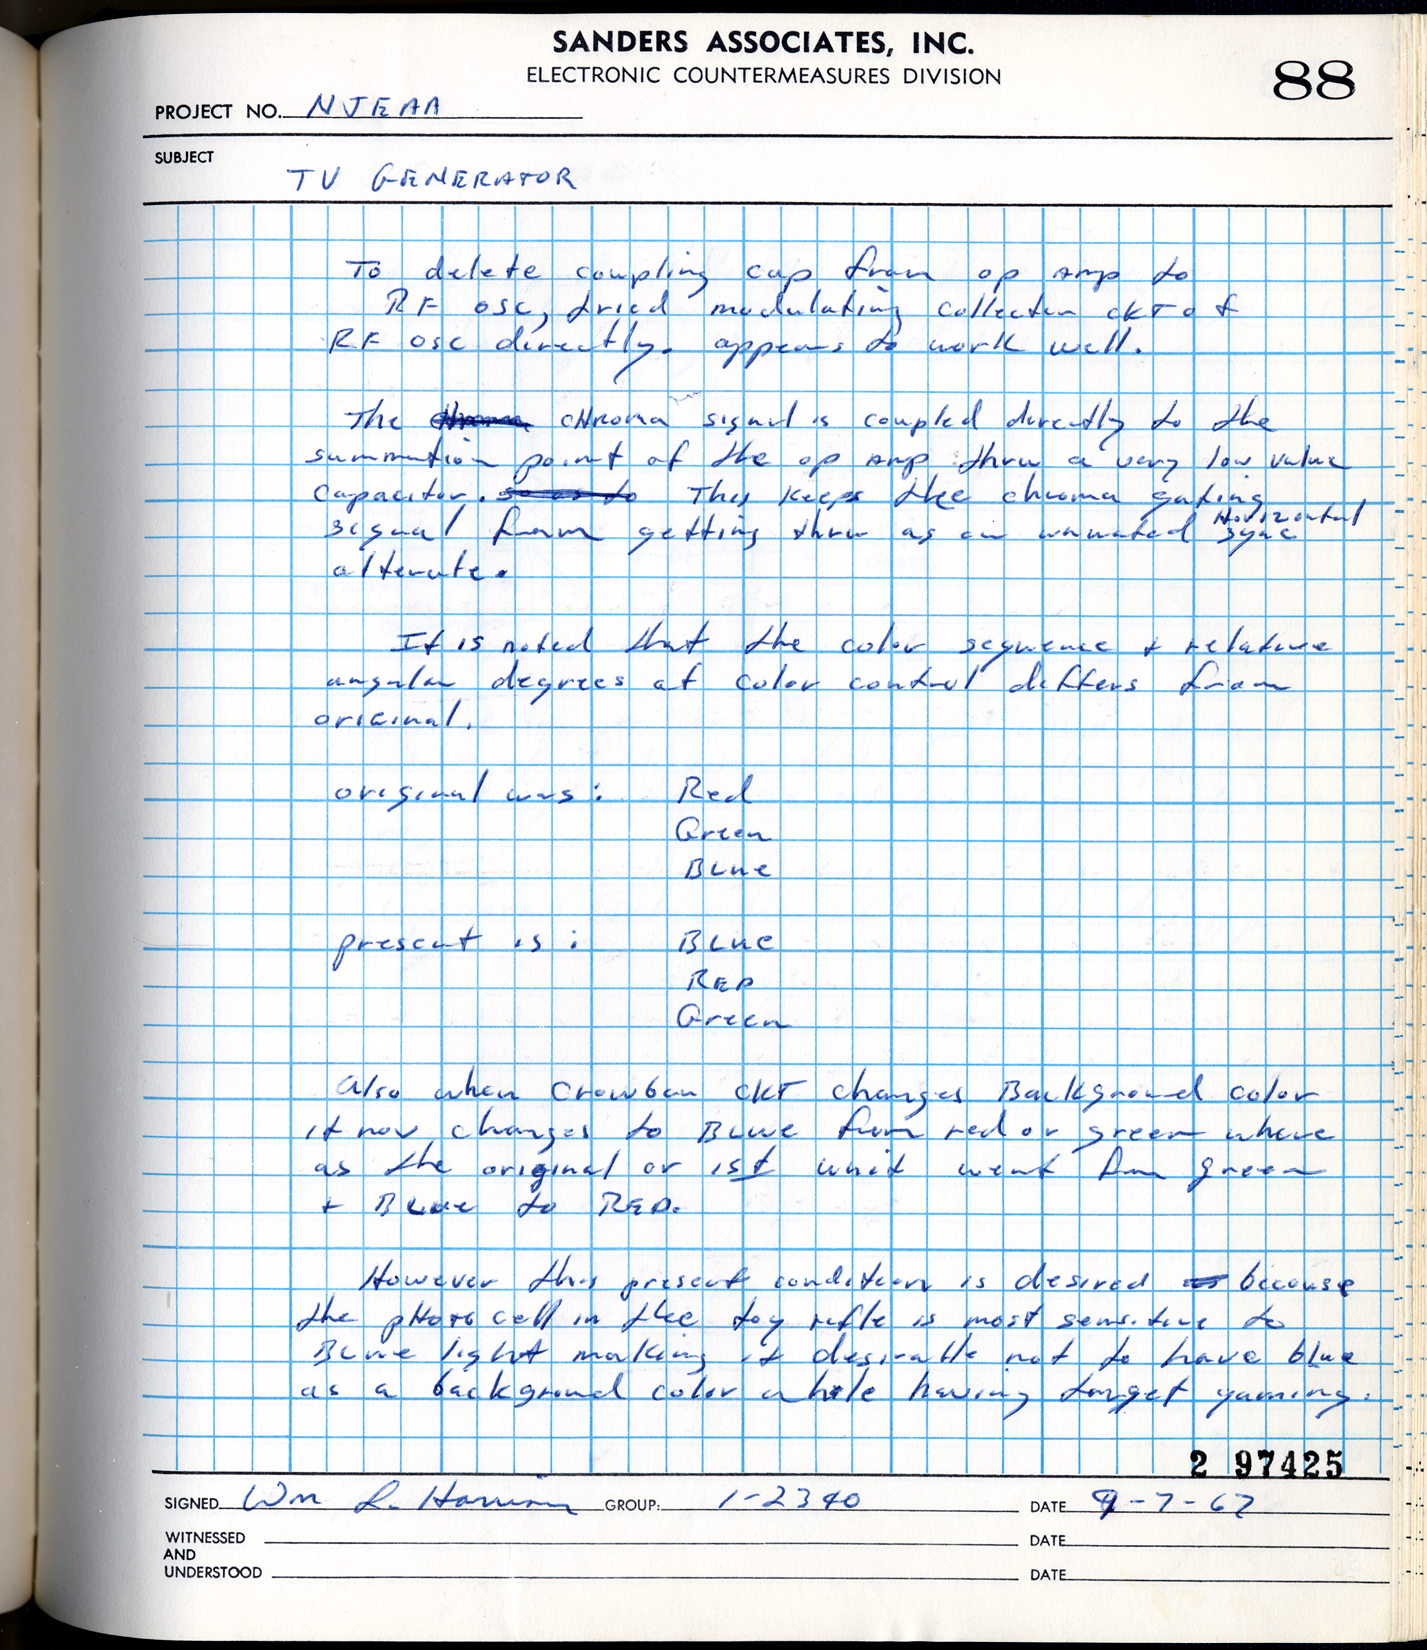 SANDERS ASSOCIATES, INC.
ELECTRONIC COUNTERMEASURES DIVISION
88
PROJECT NO. NJEAA
SUBJECT
TV GENERATOR
To delete coupling cap from op amp to
RF osc, tried modulating collector ckt of
RF osc directly. appears to work well.
The chroma signal is coupled directly to the
summation point of the op amp thru a very low value
capacitor. so as to This keeps the chroma gating
signal from getting thru as an unwanted Horizontal
sync
alternate.
It is noted that the color sequence + relative
angular degrees of color control differs from
original.
original was: Red
Green
Blue
present is: Blue
RED
Green
Also when crowbar ckt changes Background color
it now changes to Blue from red or green where
as the original or 1st unit went from green
+ Blue to RED.
However this present condition is desired because
the photo cell in the toy rifle is most sensitive to
Blue light making it desirable not to have blue
as a background color while having target gaming.
2 97425
SIGNED Wm L. Harrison GROUP: 1-2340 DATE 9-7-67
WITNESSED DATE
AND
UNDERSTOOD DATE